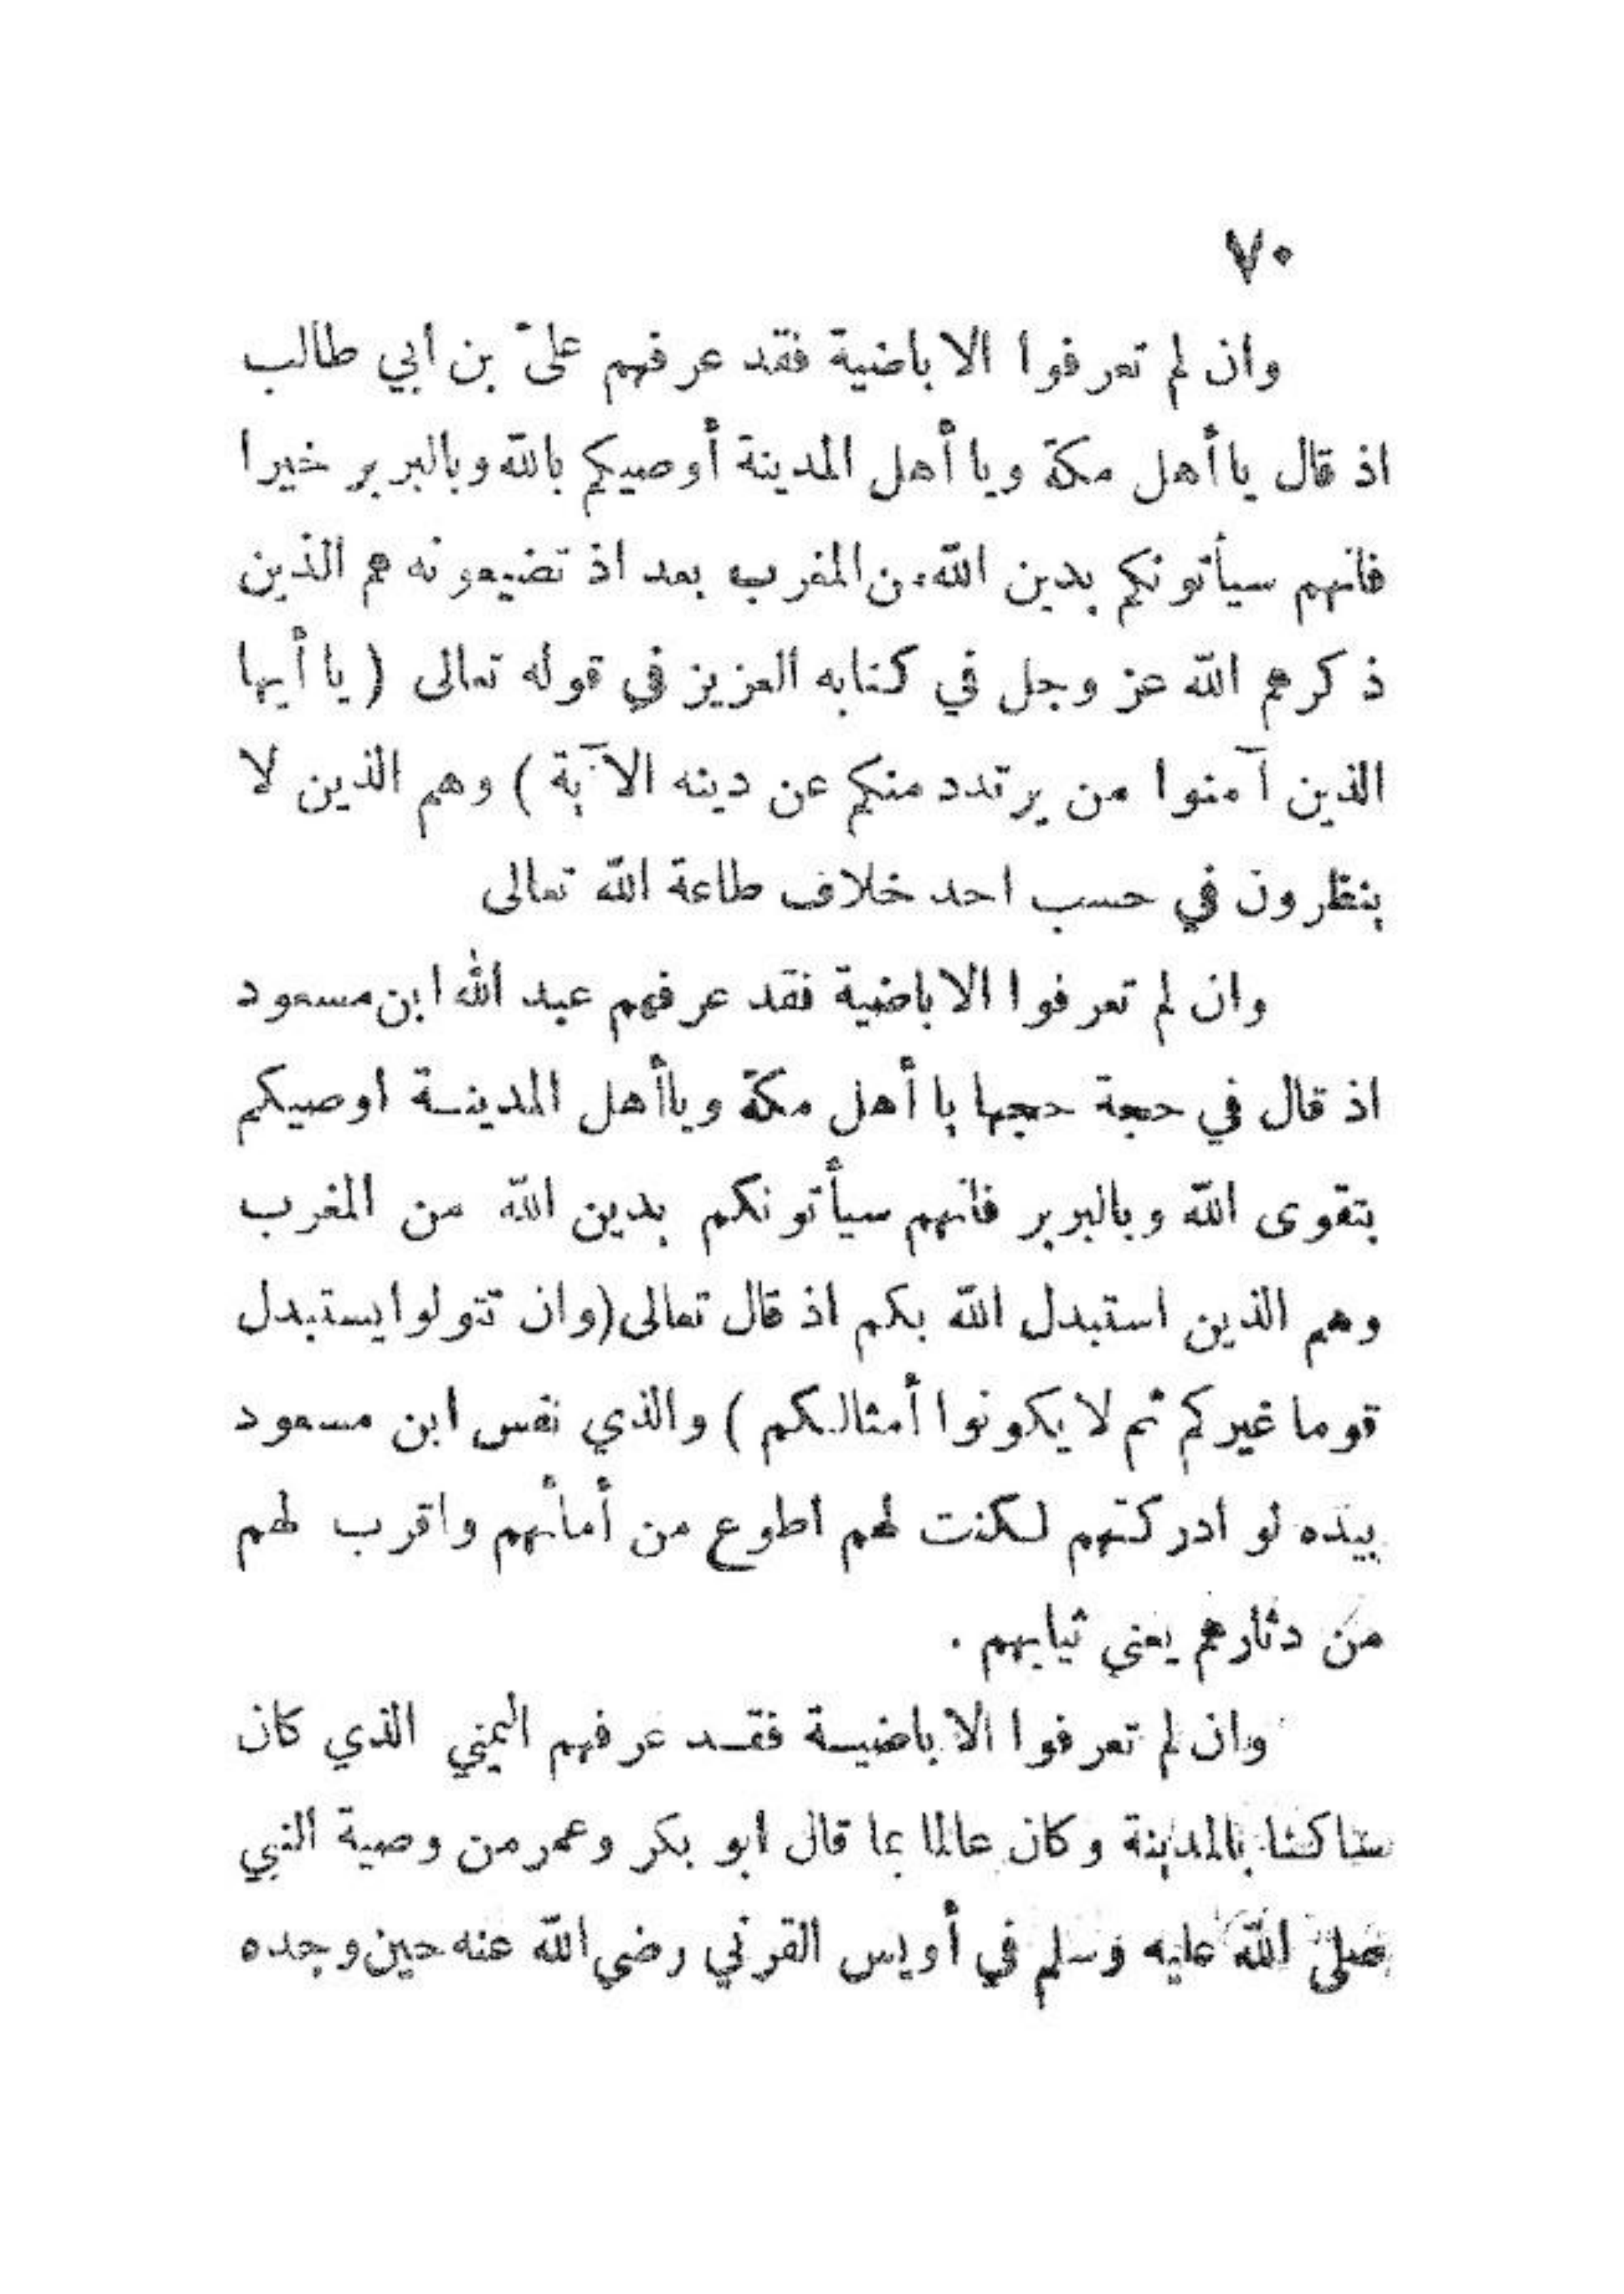 ٧٠
وان لم تعرفوا الاباضية فقد عرفهم علىّ بن أبي طالب
اذ قال يا أهل مكة ويا أهل المدينة أوصيكم بالله وبالبربر خيرا
فانهم سيأتونكم بدين الله من المغرب بعد اذ تضيعونه هم الذين
ذكرهم الله عز وجل في كتابه العزيز في قوله تعالى ( يا أيها
الذين آمنوا من يرتدد منكم عن دينه الآية ) وهم الذين لا
ينظرون في حسب احد خلاف طاعة الله تعالى
وان لم تعرفوا الاباضية فقد عرفهم عبد الله ابن مسعود
اذ قال في حجة حجها يا أهل مكة وياأهل المدينة اوصيكم
بتقوى الله وبالبربر فانهم سيأتونكم بدين الله من المغرب
وهم الذين استبدل الله بكم اذ قال تعالى (وان تتولوا يستبدل
قوما غيركم ثم لا يكونوا أمثالكم ) والذي نفس ابن مسعود
بيده لو ادركتهم لكنت لهم اطوع من أمائهم واقرب لهم
من دثارهم يعني ثيابهم .
وان لم تعرفوا الاباضية فقد عرفهم اليمني الذي كان
ساكنا بالمدينة وكان عالما بما قال ابو بكر وعمر من وصية النبي
صلى الله عليه وسلم في أويس القرني رضي الله عنه حين وجده